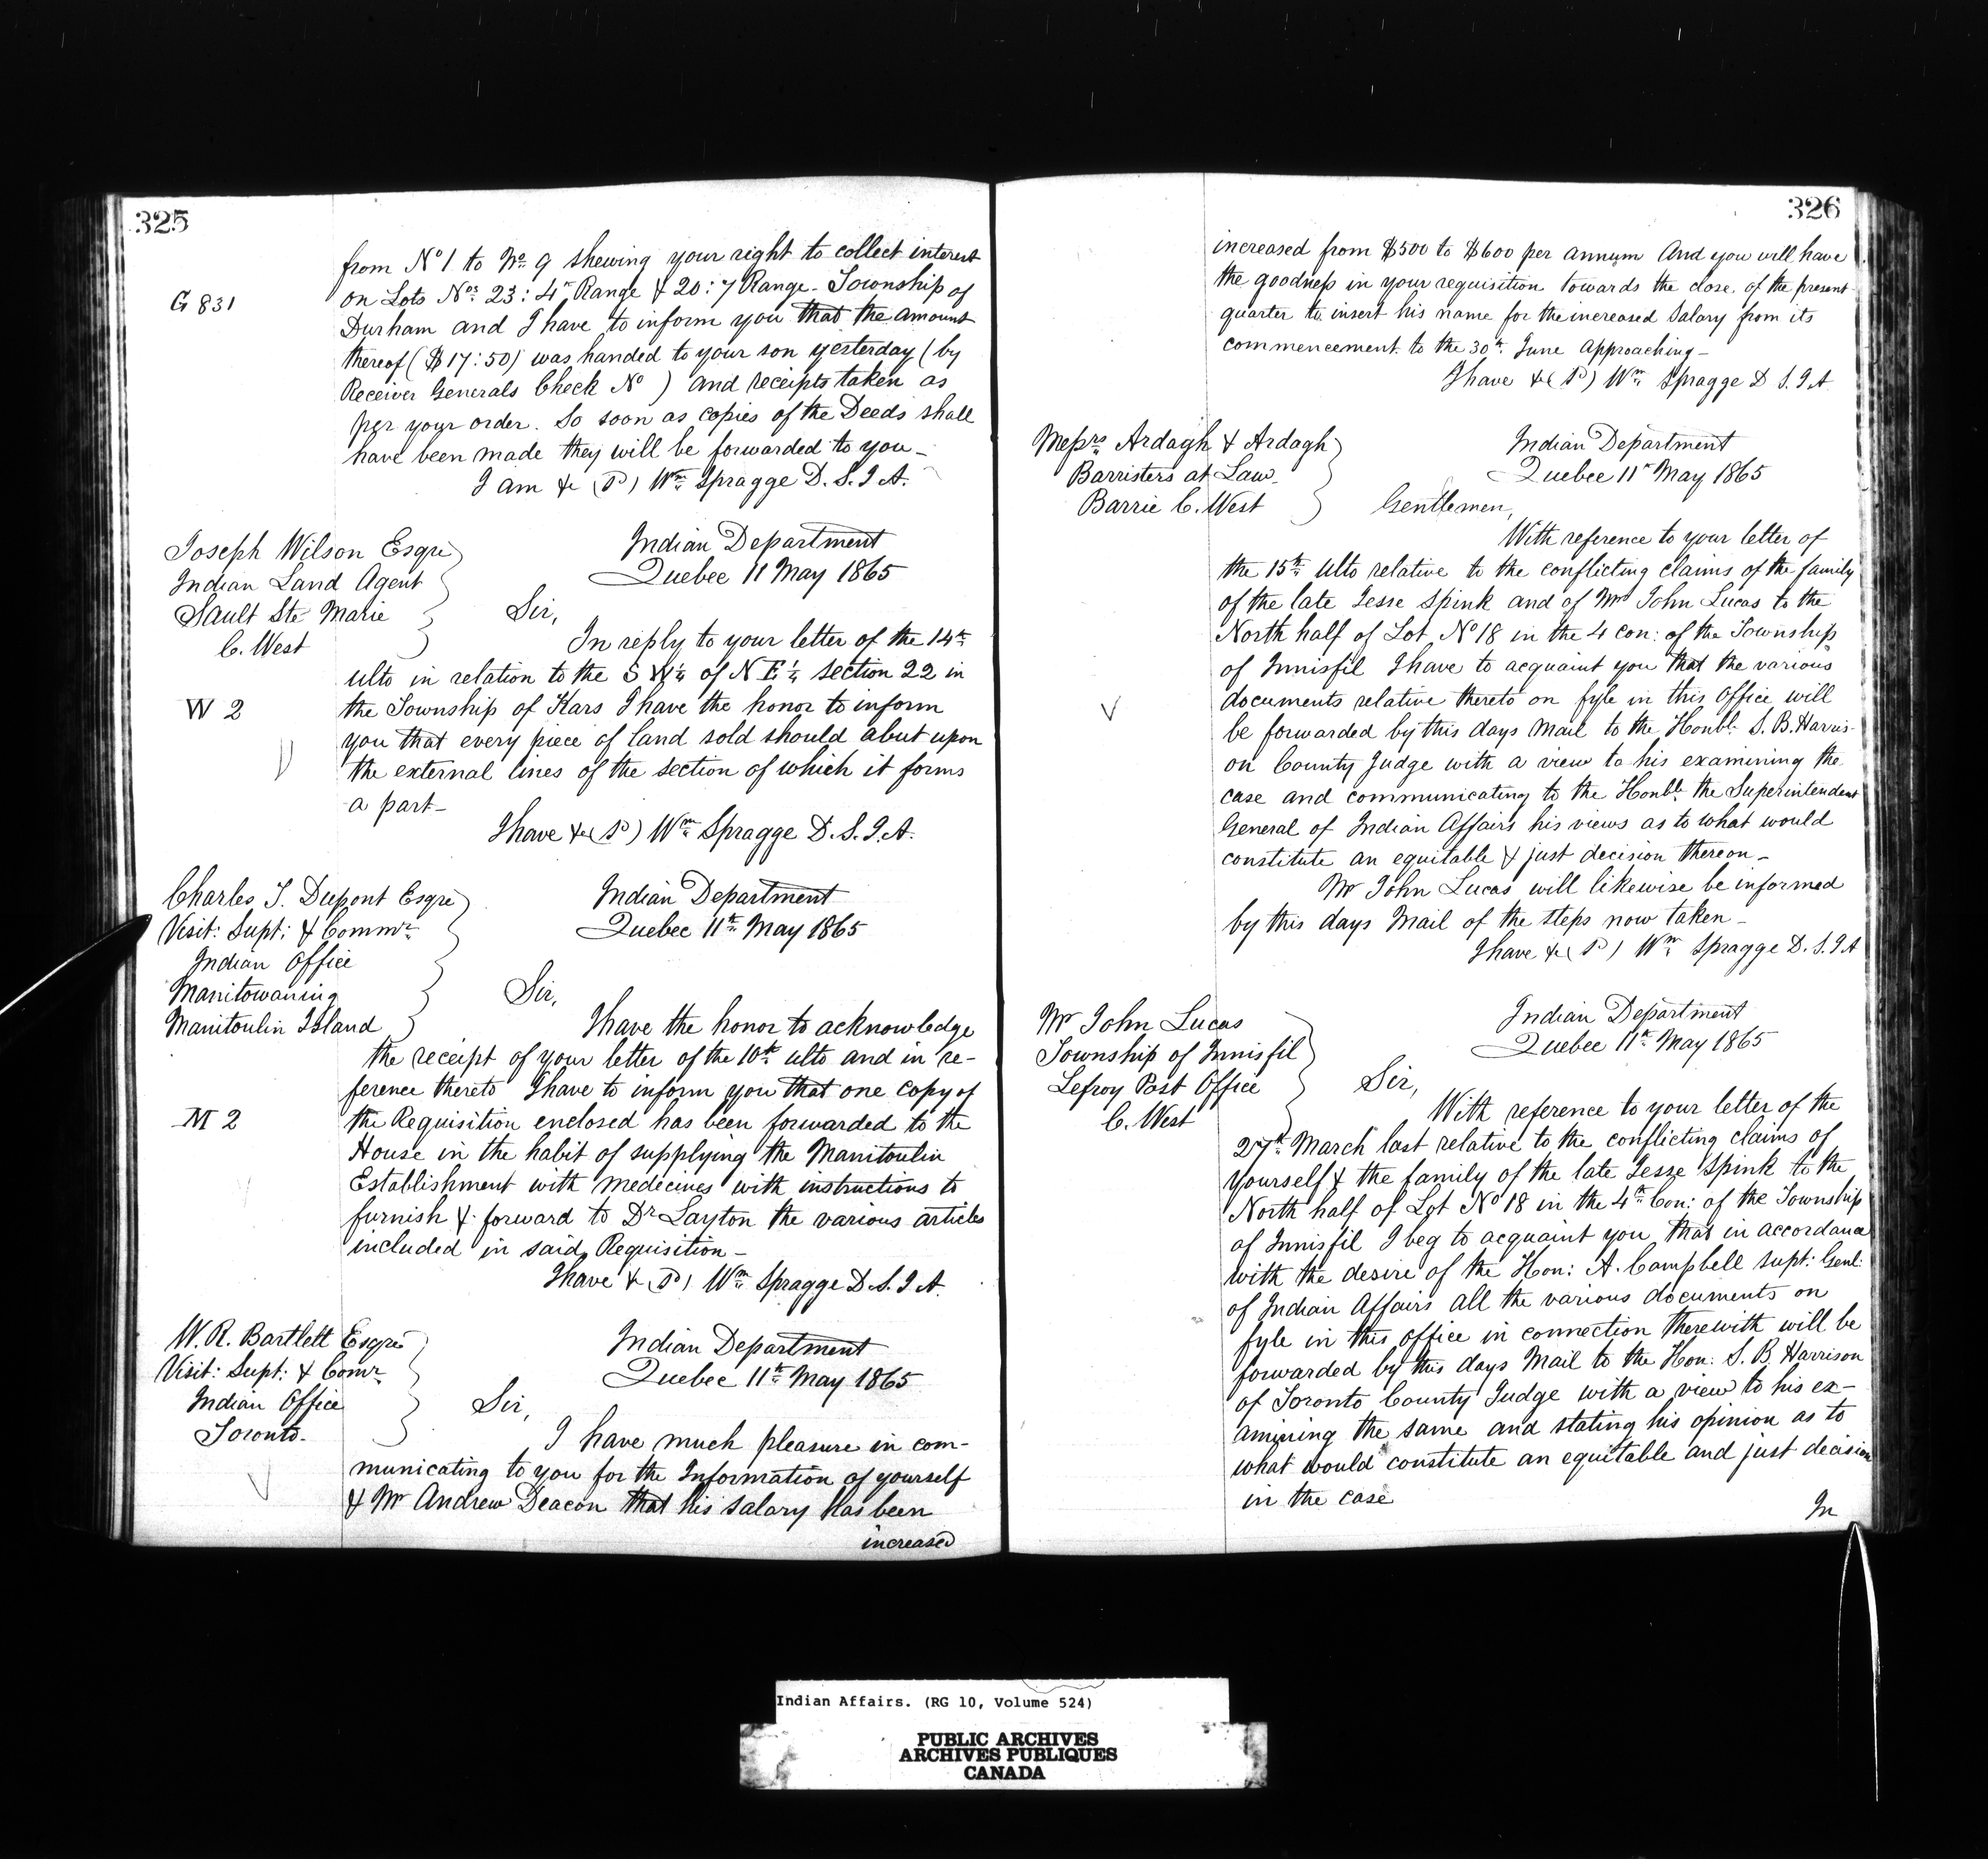 325
from No 1 to No 9 shewing your right to collect interest
G 831
on Lots Nos 23: 4th Range & 20: 7 Range - Township of
Durham and I have to inform you that the amount
thereof ($17:50) was handed to your son yesterday (by
Receiver Generals Check No ) and receipts taken as
per your order. So soon as copies of the Deeds shall
have been made they will be forwarded to you -
I am &c (Sd) Wm Spragge D.S.I.A.
Joseph Wilson Esqre
Indian Land Agent
Sault Ste Marie
C. West
Indian Department
Quebec 11 May 1865
Sir,
In reply to your letter of the 14th
ulto in relation to the S W¼ of N E¼ section 22 in
W 2
the Township of Kars I have the honor to inform
you that every piece of land sold should abut upon
the external lines of the section of which it forms
a part -
I have &c (Sd) Wm Spragge D.S.I.A.
Charles T. Dupont Esqre
Visit: Supt: & Commr
Indian Office
Manitowaning
Manitoulin Island
Indian Department
Quebec 11th May 1865
Sir,
I have the honor to acknowledge
the receipt of your letter of the 10th ulto and in re-
ference thereto I have to inform you that one copy of
M 2
the Requisition enclosed has been forwarded to the
House in the habit of supplying the Manitoulin
Establishment with medicines with instructions to
furnish & forward to Dr Layton the various articles
included in said Requisition -
I have & (Sd) Wm Spragge D.S.I.A.
W. R. Bartlett Esqre
Visit: Supt: & Comr
Indian Office
Toronto.
Indian Department
Quebec 11th May 1865
Sir,
I have much pleasure in com-
municating to you for the Information of yourself
& Mr Andrew Deacon that his salary has been
increased
326
increased from $500 to $600 per annum And you will have
the goodness in your requisition towards the close of the present
quarter to insert his name for the increased Salary from its
commencement to the 30th June Approaching -
I have &c (Sd) Wm Spragge D.S.I.A.
Messrs Ardagh & Ardagh
Barristers at Law
Barrie C. West
Indian Department
Quebec 11th May 1865
Gentlemen,
With reference to your letter of
the 15th ulto relative to the conflicting claims of the family
of the late Jesse Spink and of Mr John Lucas to the
North half of Lot No 18 in the 4 con: of the Township
of Innisfil I have to acquaint you that the various
documents relative thereto on fyle in this Office will
be forwarded by this days Mail to the Honble S. B. Harris-
on County Judge with a view to his examining the
case and communicating to the Honble the Superintendent
General of Indian Affairs his views as to what would
constitute an equitable & just decision thereon -
Mr John Lucas will likewise be informed
by this days Mail of the steps now taken -
I have &c (Sd) Wm Spragge D.S.I.A
Mr John Lucas
Township of Innisfil
Lefroy Post Office
C. West
Indian Department
Quebec 11th May 1865
Sir,
With reference to your letter of the
27th March last relative to the conflicting claims of
yourself & the family of the late Jesse Spink to the
North half of Lot No 18 in the 4th Con: of the Township
of Innisfil I beg to acquaint you that in accordance
with the desire of the Hon: A. Campbell Supt: Genl:
of Indian Affairs all the various documents on
fyle in this office in connection therewith will be
forwarded by this days Mail to the Hon: S. B. Harrison
of Toronto County Judge with a view to his ex-
amining the same and stating his opinion as to
what would constitute an equitable and just decision
in the case
In
Indian Affairs. (RG 10, Volume 524)
PUBLIC ARCHIVES
ARCHIVES PUBLIQUES
CANADA